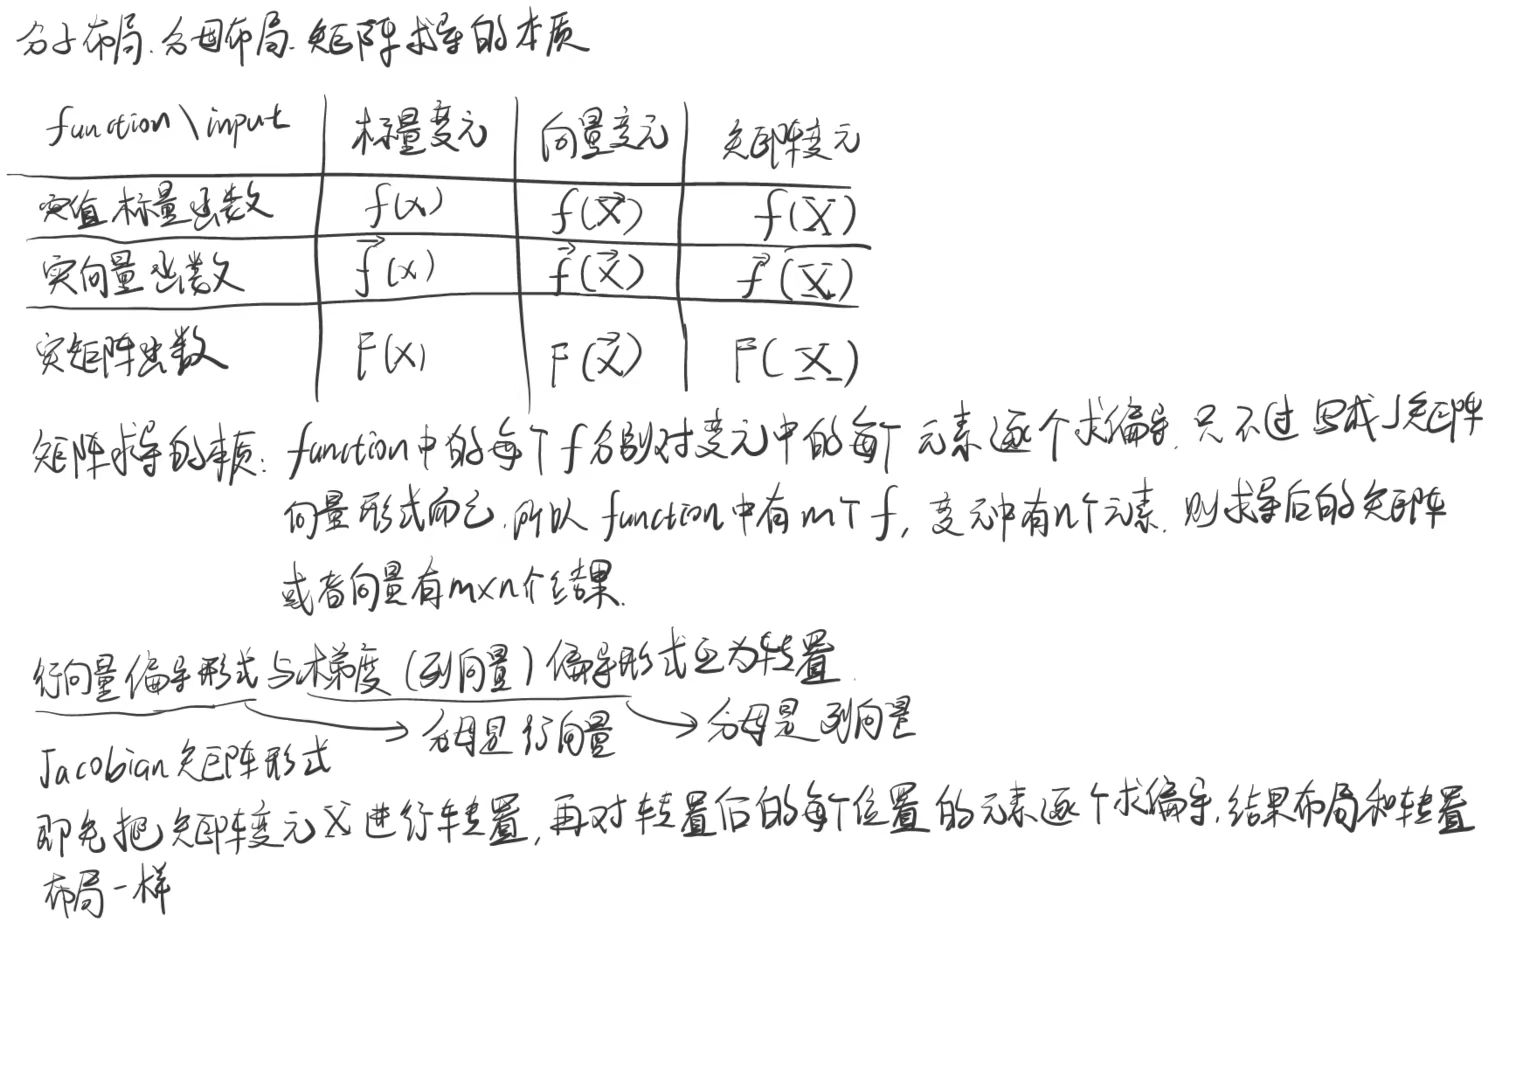 分子布局.分母布局.矩阵求导的本质
function\input 标量变元 向量变元 矩阵变元
实值标量函数 f(x) f(x⃗) f(X)
实向量函数 f⃗(x) f⃗(x⃗) f⃗(X)
实矩阵函数 F(x) F(x⃗) F(X)
矩阵求导的本质: function中的每个f分别对变元中的每个元素逐个求偏导.只不过写成了矩阵
向量形式而已.所以function中有m个f,变元中有n个元素.则求导后的矩阵
或者向量有m×n个结果.
行向量偏导形式与梯度(列向量)偏导形式互为转置.
分母是行向量 分母是列向量
Jacobian矩阵形式
即先把矩阵变元X进行转置,再对转置后的每个位置的元素逐个求偏导.结果布局和转置
布局一样